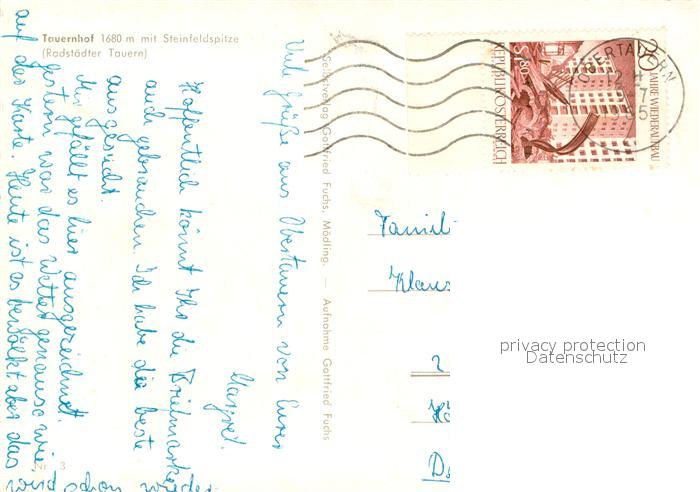 Tauernhof 1680 m mit Steinfeldspitze
(Radstädter Tauern)
Viele Grüße aus Obertauern von Eurer
Margret.
Hoffentlich könnt Ihr die Briefmarke
auch gebrauchen. Ich habe die beste
ausgesucht.
Mir gefällt es hier ausgezeichnet.
Gestern war das Wetter genauso wie
auf der Karte. Heute ist es bewölkt aber das
wird schon wieder
Nr. 3
Selbstverlag Gottfried Fuchs, Mödling. — Aufnahme Gottfried Fuchs
20 JAHRE WIEDERAUFBAU
S 1.80
REPUBLIK ÖSTERREICH
OBERTAUERN
Famil
Klaus
privacy protection
Datenschutz